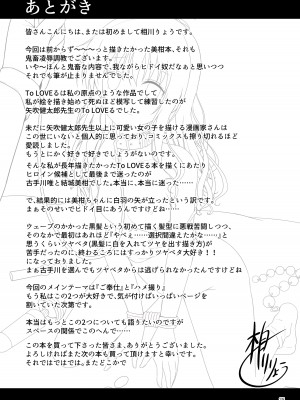 あとがき
皆さんこんにちは、または初めまして相川りょうです。
今回は前からず～～～っと描きたかった美柑本、それも
鬼畜凌辱調教でございます。
いや～ほんと鬼畜な内容で、我ながらヒドイ奴だなぁと思いつつ
それでも筆が止まりませんでした。
To LOVEるは私の原点のような作品でして
私が絵を描き始めて死ぬほど模写して練習したのが
矢吹健太郎先生のTo LOVEるでした。
未だに矢吹健太郎先生以上に可愛い女の子を描ける漫画家さんは
この世にいないと個人的に思っており、コミックスも擦り切れるほど
愛読しました。
もうとにかく好きで好きでしょうがないのです。
そんな私が長年描きたかったTo LOVE本を描くにあたり
ヒロイン候補として最後まで迷ったのが
古手川唯と結城美柑でした。本当に、本当に迷った…
で、結果的には美柑ちゃんに白羽の矢が立ったという訳です。
まぁそのせいでヒドイ目にあうんですけどね…
ウェーブのかかった黒髪という初めて描く髪型に悪戦苦闘しつつ、
そのなかで最初はあれほど『やべえ……選択間違えたかな……』と
思うくらいツヤベタ(黒髪に白を入れてツヤを出す描き方)が
苦手だったのに、終わるころにはすっかりツヤベタ大好き！！
になっておりました。
まぁ古手川を選んでもツヤベタからは逃げれなかったんですけどね
今回のメインテーマは『ご奉仕』と『ハメ撮り』
もう私はこの2つが大好きで、気が付けばいっぱいページを
割いていた次第です。
本当はもっとこの2つについても語りたいのですが
スペースの関係でこのへんで…
この本を買って下さった皆さま、ありがとうございました。
よろしければまた次の本も買って頂けますと幸いです。
それではではでは。またどこかで
相川りょう